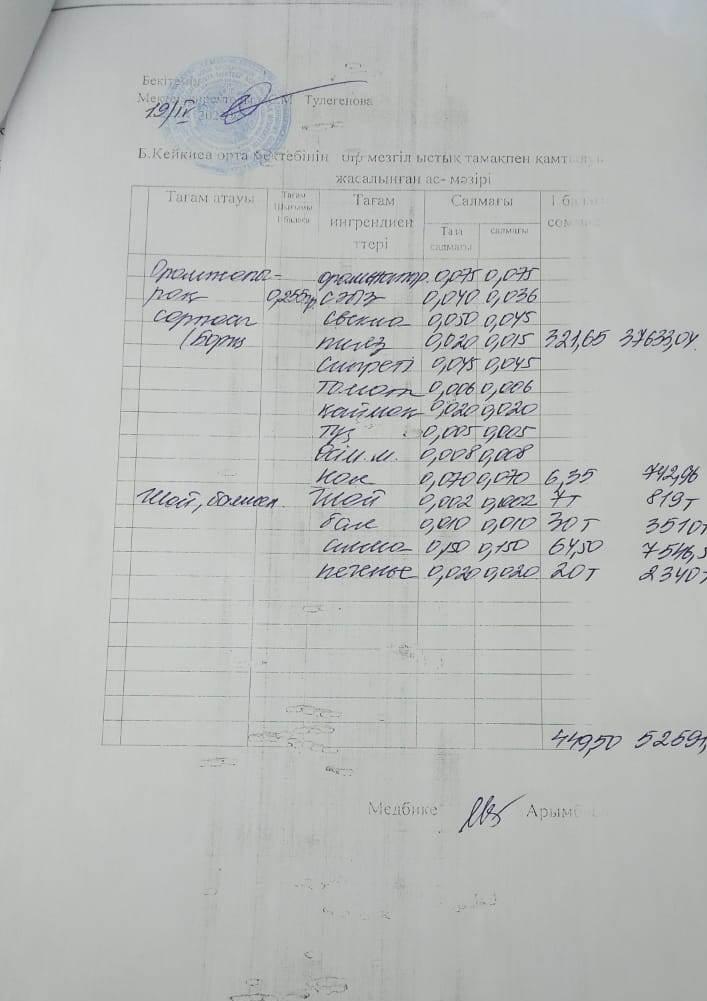 Бекітемін
Мектеп директоры М Тулегенова
19/IV 202
Б.Кейкиеа орта бектебінін бір мезгіл ыстық тамақпен қамтылуы
жасалынған ас- мәзірі
Тағам атауы Тағам Шығымы 1 балаға Тағам ингрендиен ттері Салмағы 1 бала
Таза салмағы салмағы сом
Орамжапы- орамжапыр. 0,075 0,075
рақ 0,255гр. сәбіз 0,040 0,036
сорпасы свекла 0,050 0,045
(Борщ пияз 0,020 0,015 321,65 37633,04.
0,045 0,045
томат 0,006 0,006
қаймақ 0,020 0,020
тұз 0,005 0,005
Өсім.м. 0,008 0,008
нан 0,070 0,070 6,35 742,96
Шай, шай 0,002 0,002 7т 819т
бал 0,010 0,010 30т 3510т
алма 0,150 0,150 64,50 7546,5
печенье 0,020 0,020 20т 2340т
449,50 52591,
Медбике Арымб